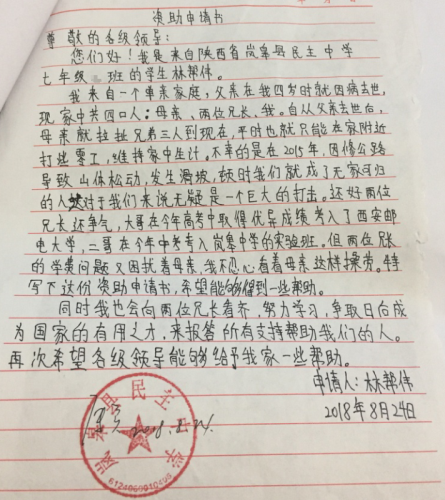 资助申请书
尊敬的各级领导：
您们好！我是来自陕西省岚皋县民主中学
七年级 班的学生林帮伟。
我来自一个单亲家庭，父亲在我四岁时就因病去世，
现家中共四口人：母亲、两位兄长、我。自从父亲去世后，
母亲就拉扯兄弟三人到现在，平时也就只能在家附近
打些零工，维持家中生计。不幸的是在2015年，因修公路
导致山体松动，发生滑坡，顿时我们就成了无家可归
的人，对于我们来说无疑是一个巨大的打击。还好两位
兄长还争气，大哥在今年高考中取得优异成绩考入了西安邮
电大学，二哥在今年中考考入岚皋中学的实验班。但两位兄长
的学费问题又困扰着母亲，我不忍心看着母亲这样操劳。特
写下这份资助申请书，希望能够得到一些帮助。
同时我也会向两位兄长看齐，努力学习，争取日后成
为国家的有用之才，来报答所有支持帮助我们的人。
再次希望各级领导能够给予我家一些帮助。
申请人：林帮伟
2018年8月24日
岚皋县民主中学
2018.8.24.